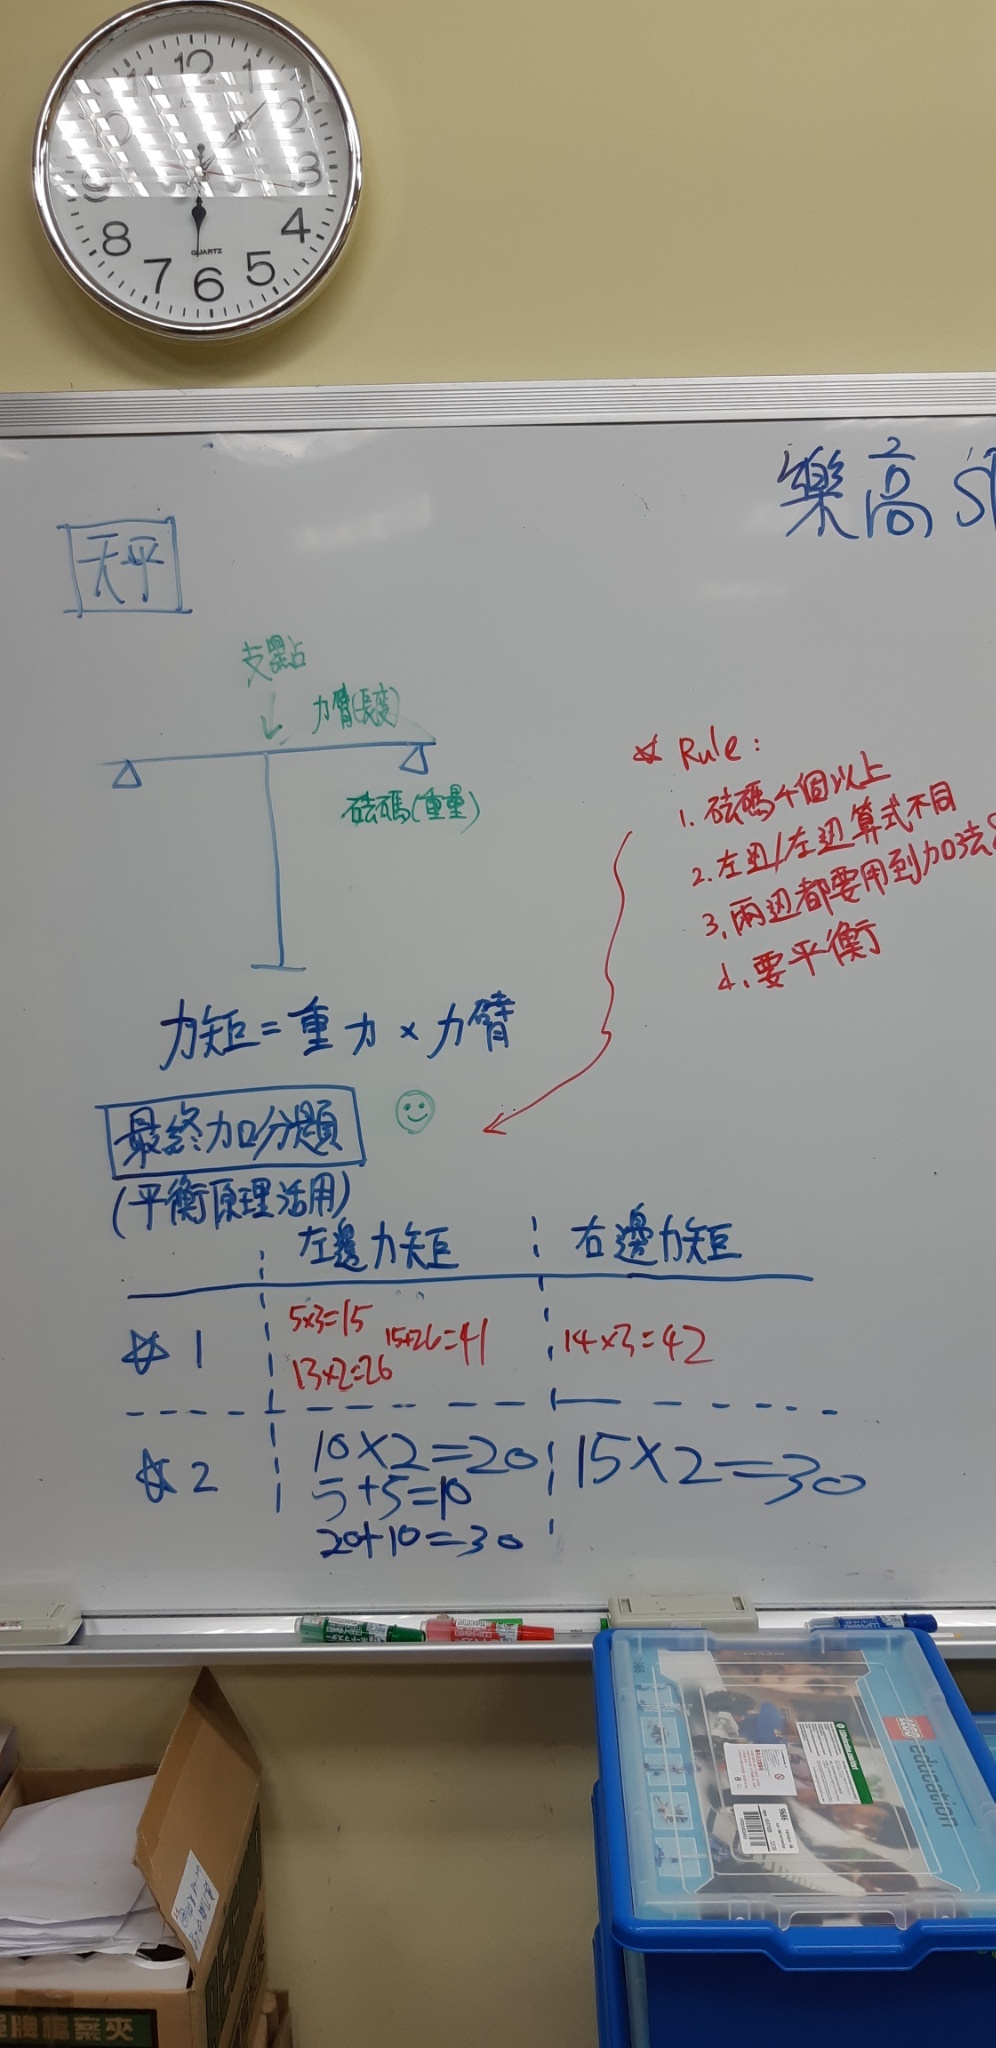 12
1
2
3
4
5
6
7
8
QUARTZ
樂高
天平
支點
力臂(長度)
砝碼(重量)
Rule:
1. 砝碼4個以上
2. 左边/左边算式不同
3. 兩边都要用到加法
4. 要平衡
力矩=重力×力臂
最終加分題
(平衡原理活用)
左邊力矩 右邊力矩
1 5×3=15 15+26=41 14×3=42
13×2=26
2 10×2=20 15×2=30
5+5=10
20+10=30
LEGO education
9686
檔案夾